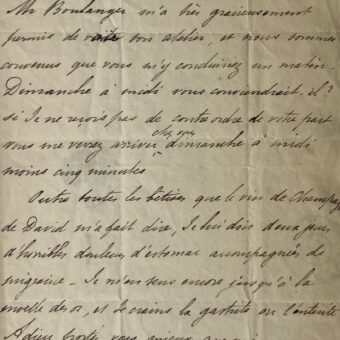 Mr Boulanger m'a très gracieusement
permis de voir son atelier, et nous sommes
convenus que vous m'y conduiriez un matin.
Dimanche à midi vous conviendrait-il ?
si Je ne reçois pas de contre ordre de votre part
vous me verrez arriver chez vous dimanche à midi
moins cinq minutes
Outre toutes les bêtises que le vin de Champagne
de David m'a fait dire, Je lui dois deux jours
d'horribles douleurs d'estomac accompagnés de
migraine – Je m'en sens encore jusqu'à la
moelle des os, et Je crains la gastrite ou l'entérite
Adieu portez vous mieux que moi